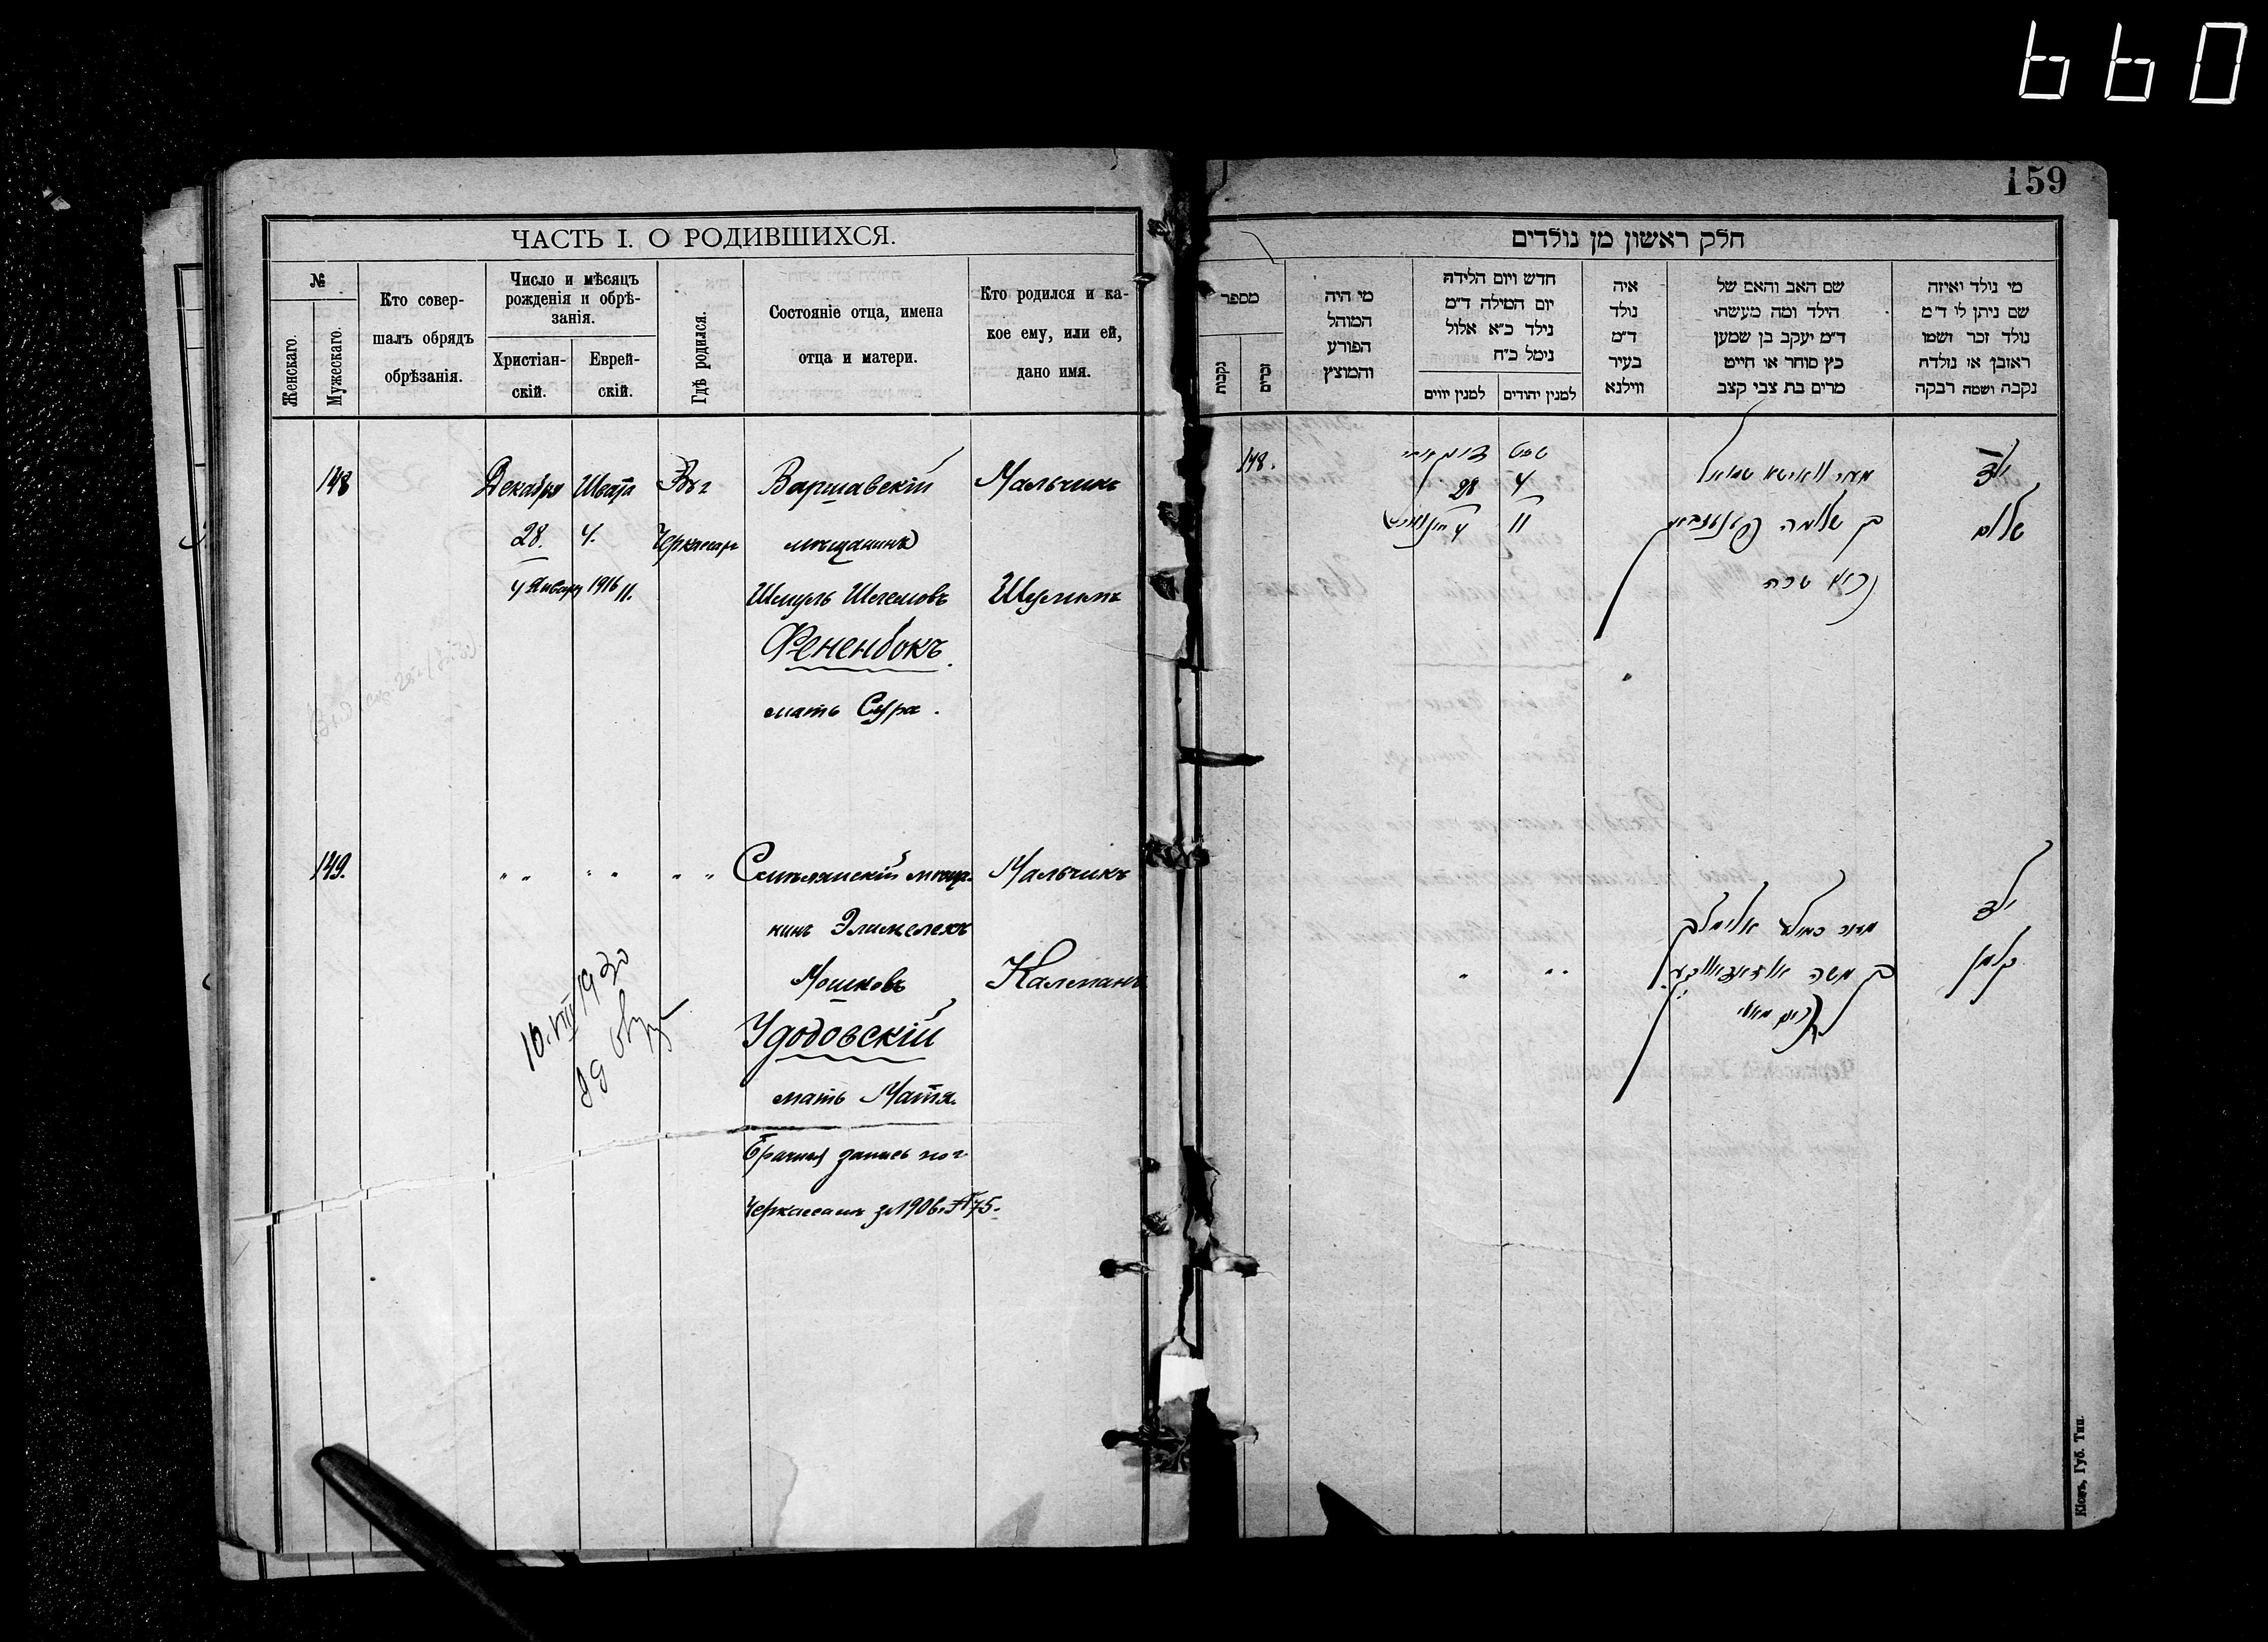 660
159
ЧАСТЬ I. О РОДИВШИХСЯ.
№
Женскаго.
Мужескаго.
Кто совер-
шалъ обрядъ
обрѣзанія.
Число и мѣсяцъ
рожденія и обрѣ-
занія.
Христіан-
скій.
Еврей-
скій.
Гдѣ родился.
Состояніе отца, имена
отца и матери.
Кто родился и ка-
кое ему, или ей,
дано имя.
148
Декабря
28.
4 Января 1916
Швата
4.
11.
Варшавскій
мѣщанинъ
Шмуль
Фененбокъ
мать Сура.
Мальчикъ
149.
" "
" "
" "
Смѣлянскій мѣща-
нинъ Элимелехъ
Мошковъ
Удодовскій
мать Матя.
Брачная запись по г.
Черкассамъ за 1906 г. № 75.
Мальчикъ
Калманъ
10.VIII 1930
חלק ראשון מן נולדים
מספר
נקבות
זכרים
מי היה
המוהל
הפורע
והמוצץ
חדש ויום הלידה
יום המילה ד״מ
נילד כ״א אלול
נימל כ״ח
למנין יווים
למנין יהודים
איה
נולד
ד״מ
בעיר
ווילנא
שם האב והאם של
הילד ומה מעשהו
ד״מ יעקב בן שמעון
כץ סוחר או חייט
מרים בת צבי קצב
מי נולד ואיזה
שם ניתן לו ד״מ
נולד זכר ושמו
ראובן או נולדה
נקבה ושמה רבקה
148.
28
4
שבט
4
11
בן שלמה
שרה
ילד
שלום
אלימלך
בן משה
ילד
קלמן
Кіевъ, Губ. Тип.